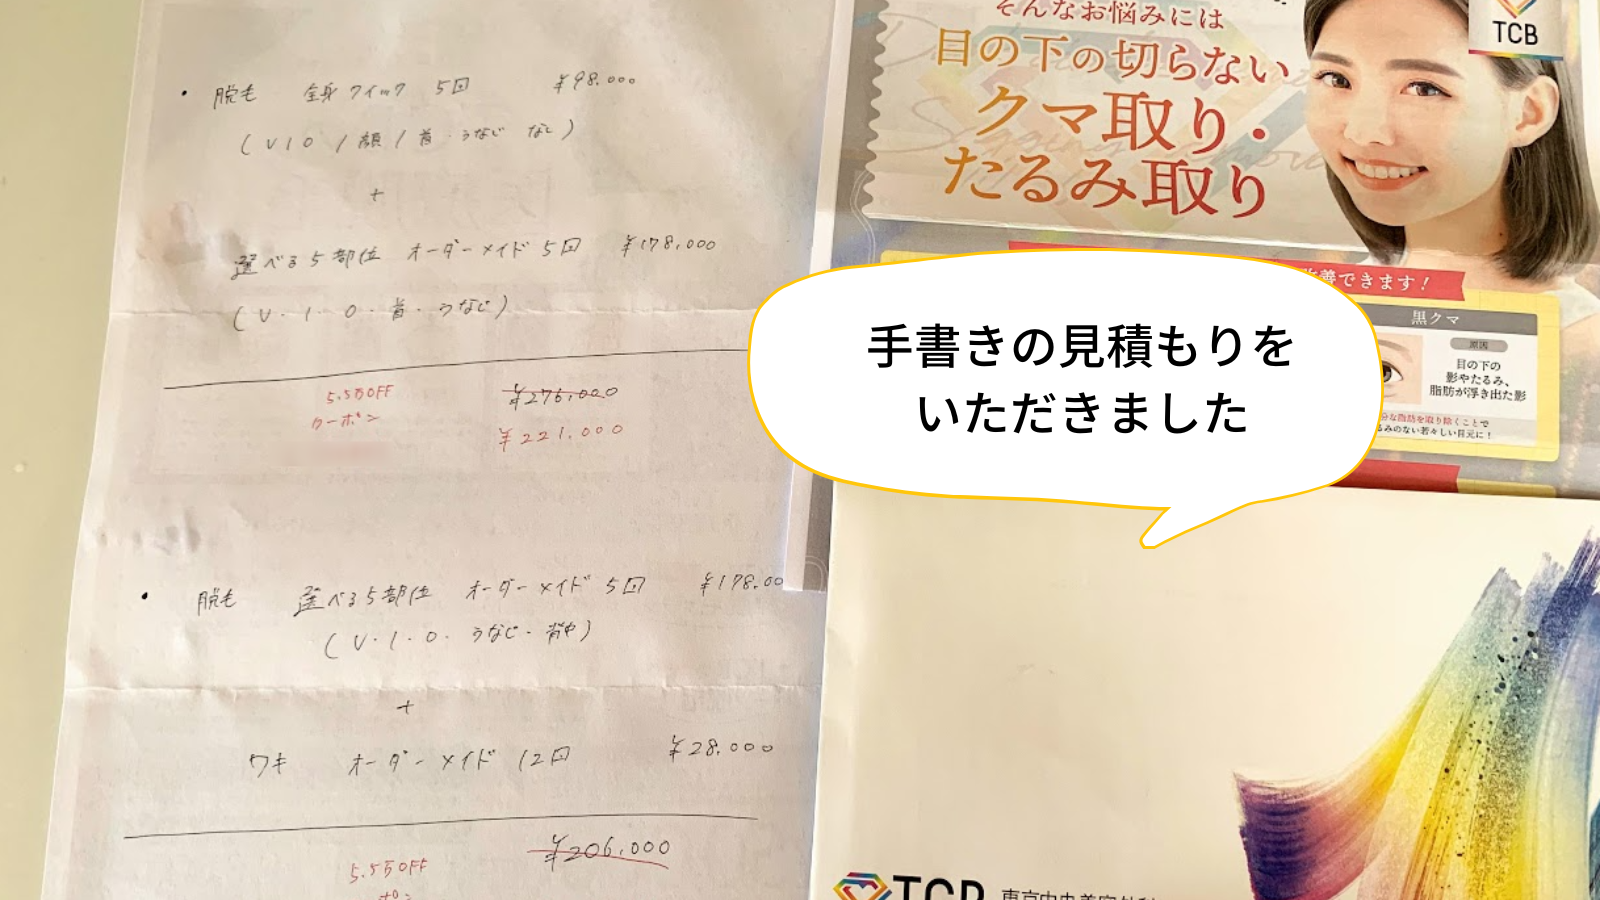 ・ 脱毛 全身クイック 5回 ¥98.000
(VIO / 顔 / 首・うなじ なし)
+
選べる5部位 オーダーメイド 5回 ¥178,000
(V・I・O・首・うなじ)
5.5万OFF
クーポン
¥276,000
¥221.000
・ 脱毛 選べる5部位 オーダーメイド 5回 ¥178.00
(V・I・O・うなじ・背中)
+
ワキ オーダーメイド 12回 ¥28.000
¥206.000
5.5万OFF
そんなお悩みには
目の下の切らない
クマ取り・
たるみ取り
TCB
改善できます!
黒クマ
原因
目の下の
影やたるみ、
脂肪が浮き出た影
な脂肪を取り除くことで
るみのない若々しい目元に!
手書きの見積もりを
いただきました
TCB 東京中央美容外科